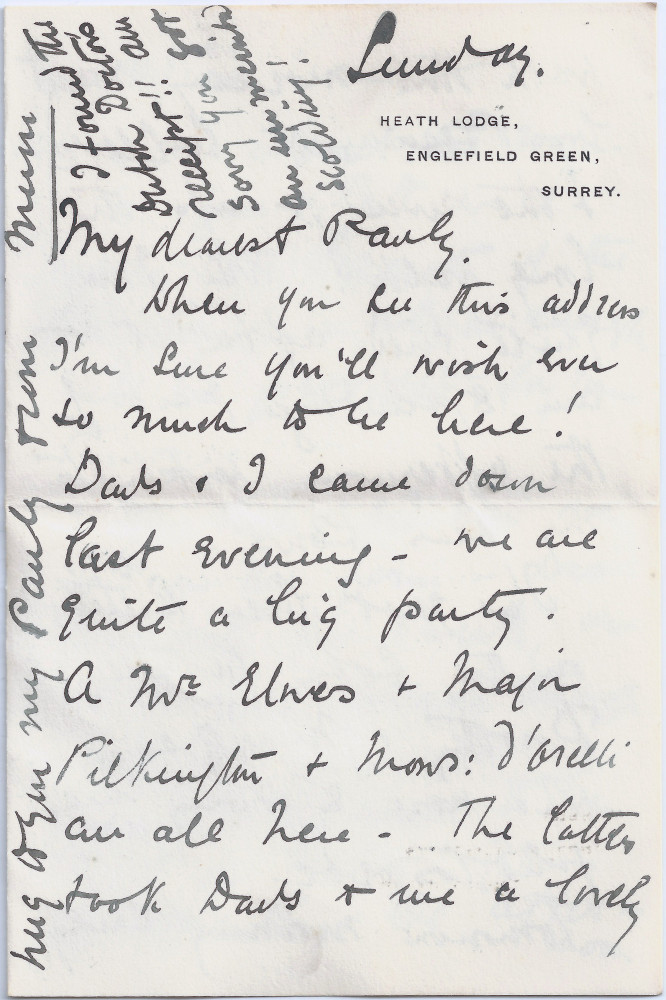 Sunday.
HEATH LODGE,
ENGLEFIELD GREEN,
SURREY.
My dearest Pauly,
When you see this address
I'm sure you'll wish ever
so much to be here!
Dads & I came down
last evening - we are
quite a big party.
A Mr Elwes & Major
Pilkington & Mons: d'Orelli
are all here - The latter
took Dads & me a lovely
hug to my Pauly from Mum
I found the
Dutch Doctor's
receipt!! So you got
an unmerited
scolding!